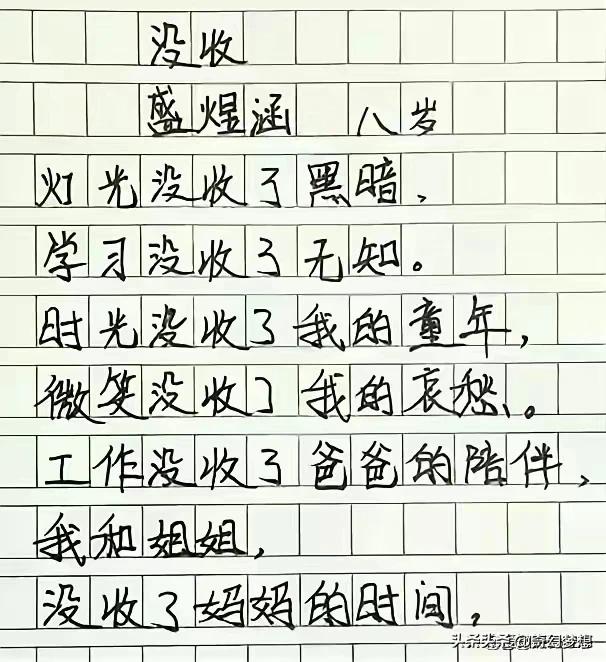 没收
盛煜涵 八岁
灯光没收了黑暗,
学习没收了无知。
时光没收了我的童年,
微笑没收了我的哀愁。
工作没收了爸爸的陪伴,
我和姐姐,
没收了妈妈的时间,